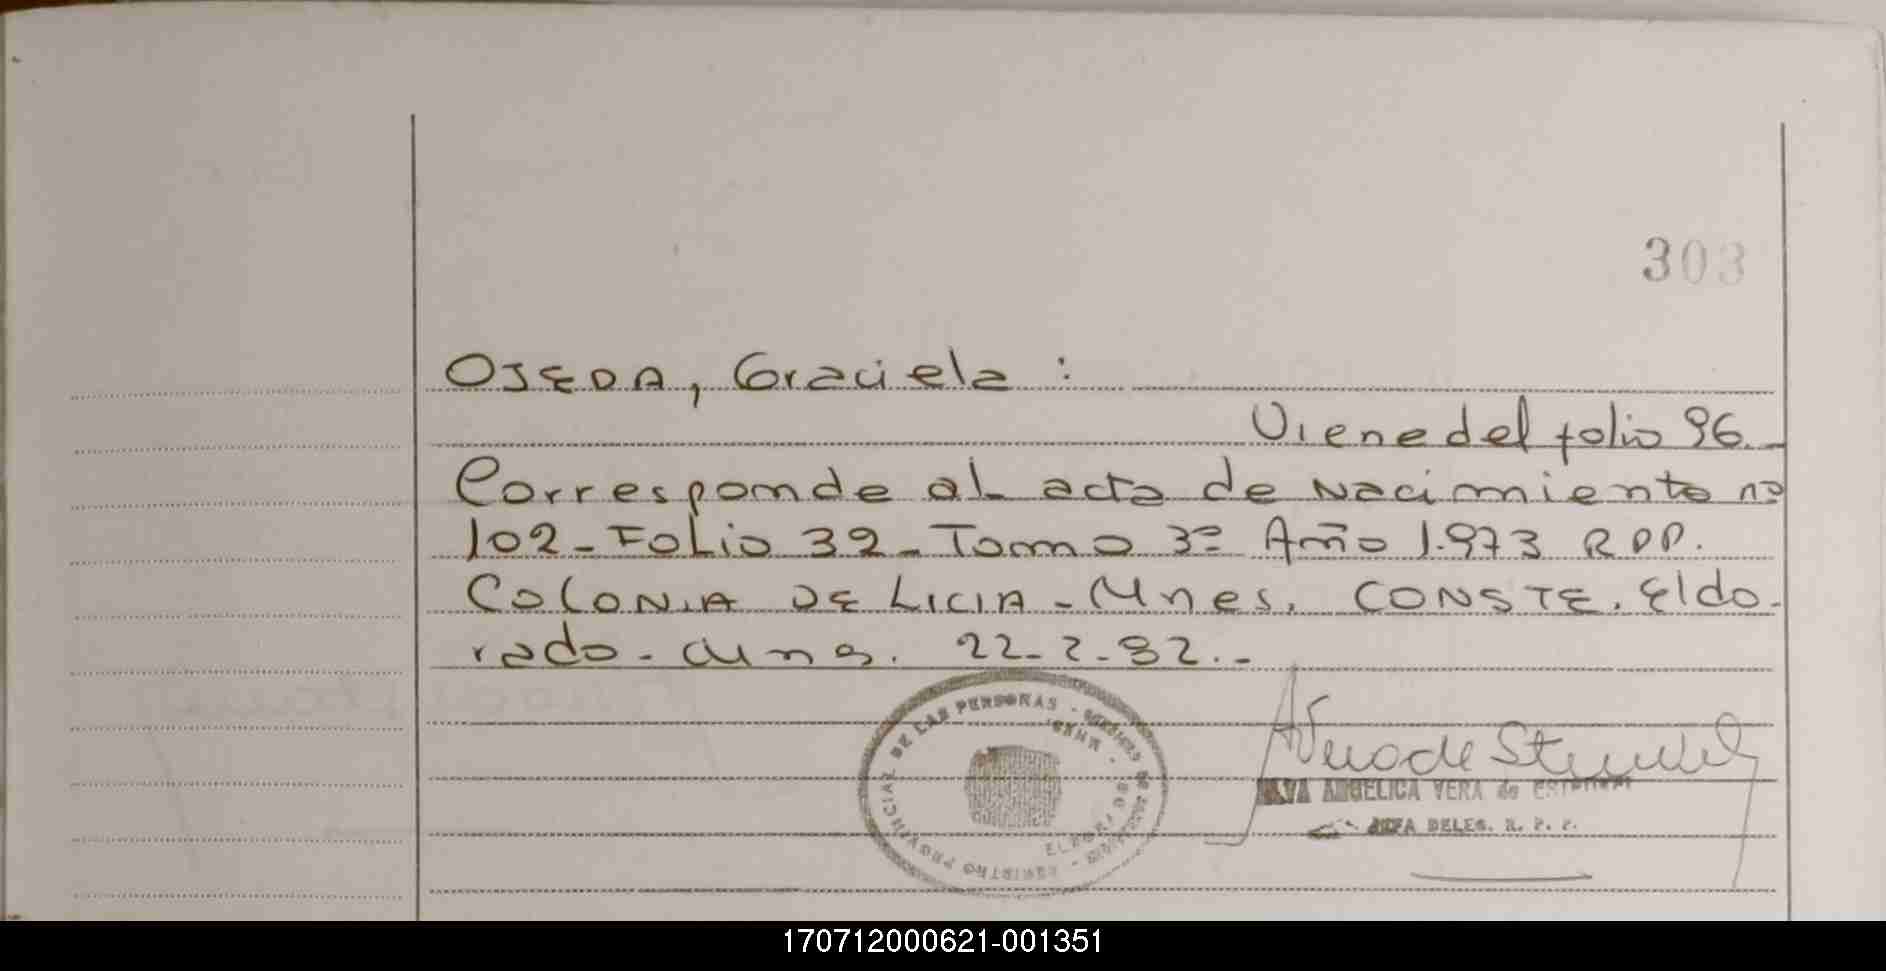 303
OJEDA, Graciela :
Viene del folio 96.-
Corresponde al acta de Nacimiento nº
102-Folio 32-Tomo 3º Año 1.973 RPP.
COLONIA DELICIA-Mnes. CONSTE. Eldo-
rado-Mns. 22-2-82.-
DE LAS PERSONAS
REGISTRO PROVINCIAL
A Vera de
ANGELICA VERA de
JEFA DELEG. R. P. P.
170712000621-001351